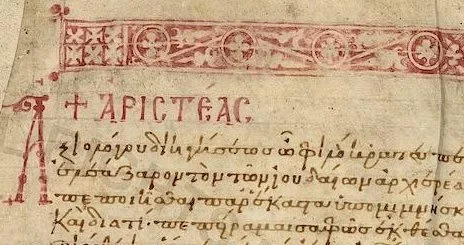 + ἈΡΙΣΤΈΑΣ
Ἀξιολόγου διηγήσεως ὦ φιλόκρατες πε
ἐλεάζαρον τὸν τῶν ἰουδαίων ἀρχιερέα
πεποιῆσθαι παρ' ἕκαστα ὑπομιμνήσκ
καὶ διὰ τί πεπείραμαι σαφῶς ἐκθέσθα